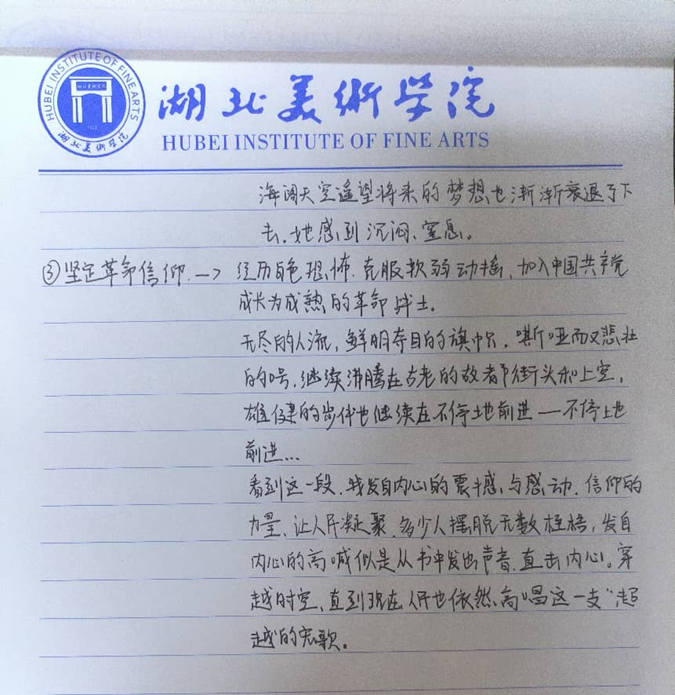 HUBEI INSTITUTE OF FINE ARTS
湖北美術学院
湖北美術学院
HUBEI INSTITUTE OF FINE ARTS
海阔天空遥望将来的梦想也渐渐衰退了下
去.她感到沉闷、窒息。
③坚定革命信仰.—> 经历白色恐怖.克服软弱动摇、加入中国共产党
成长为成熟的革命战士.
无尽的人流,鲜明夺目的旗帜.嘶哑而又悲壮
的号.继续沸腾在古老的故都街头和上空,
雄健的步伐也继续在不停地前进—不停地
前进...
看到这一段.我发自内心的震撼与感动.信仰的
力量,让人民凝聚.多少人摆脱无数桎梏,发自
内心的高喊似是从书中发出声音.直击内心。穿
越时空、直到现在人民也依然高唱这一支“超
越”的宏歌。